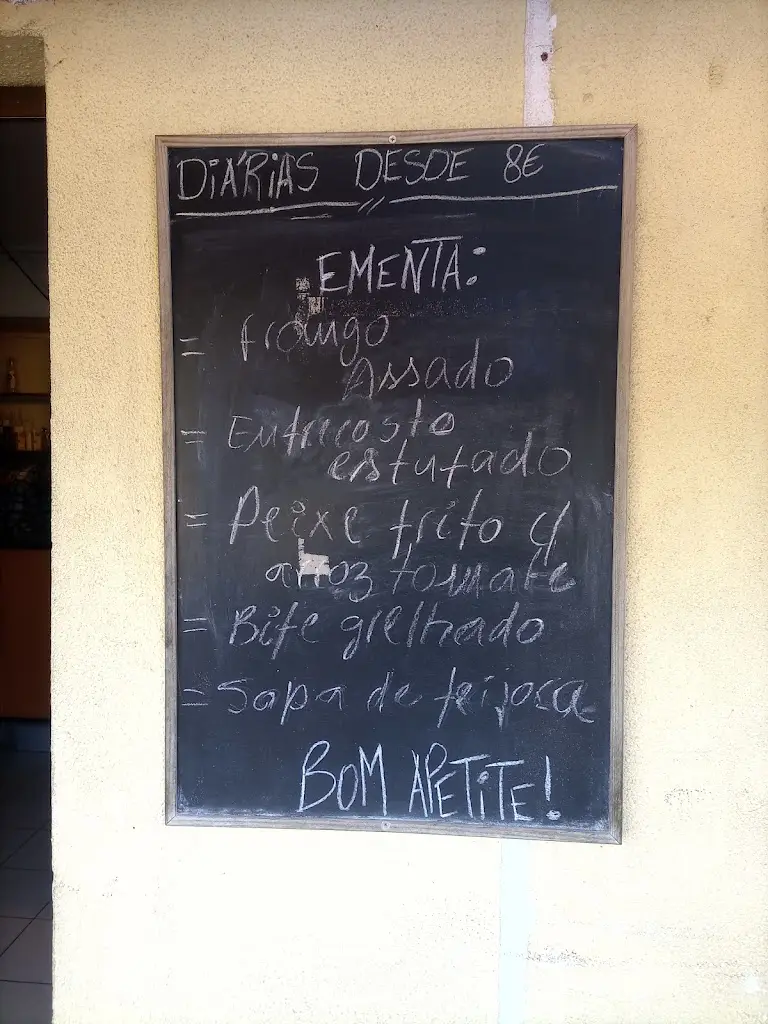 DIÁRIAS DESDE 8€
EMENTA:
= frango
Assado
= Entrecosto
estufado
= Peixe frito c/
arroz tomate
= Bife grelhado
= Sopa de feijoca
BOM APETITE!